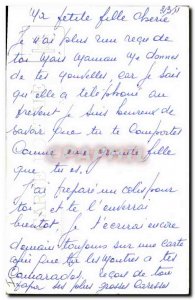 Ma petite fille chérie 3/3/51
Je n'ai plus rien reçu de
toi mais Maman me donnes
de tes nouvelles, car je sais
qu'elle a téléphoné au
présent je suis heureux de
savoir que tu te comportes
comme une grande fille
que tu es.
J'ai préparé un colis pour
toi et te l'enverrai
bientôt. Je t'écrirai encore
demain toujours sur une carte
afin que tu les montres a tes
Camarades. reçois de ton
papa ses plus grosses Caresses